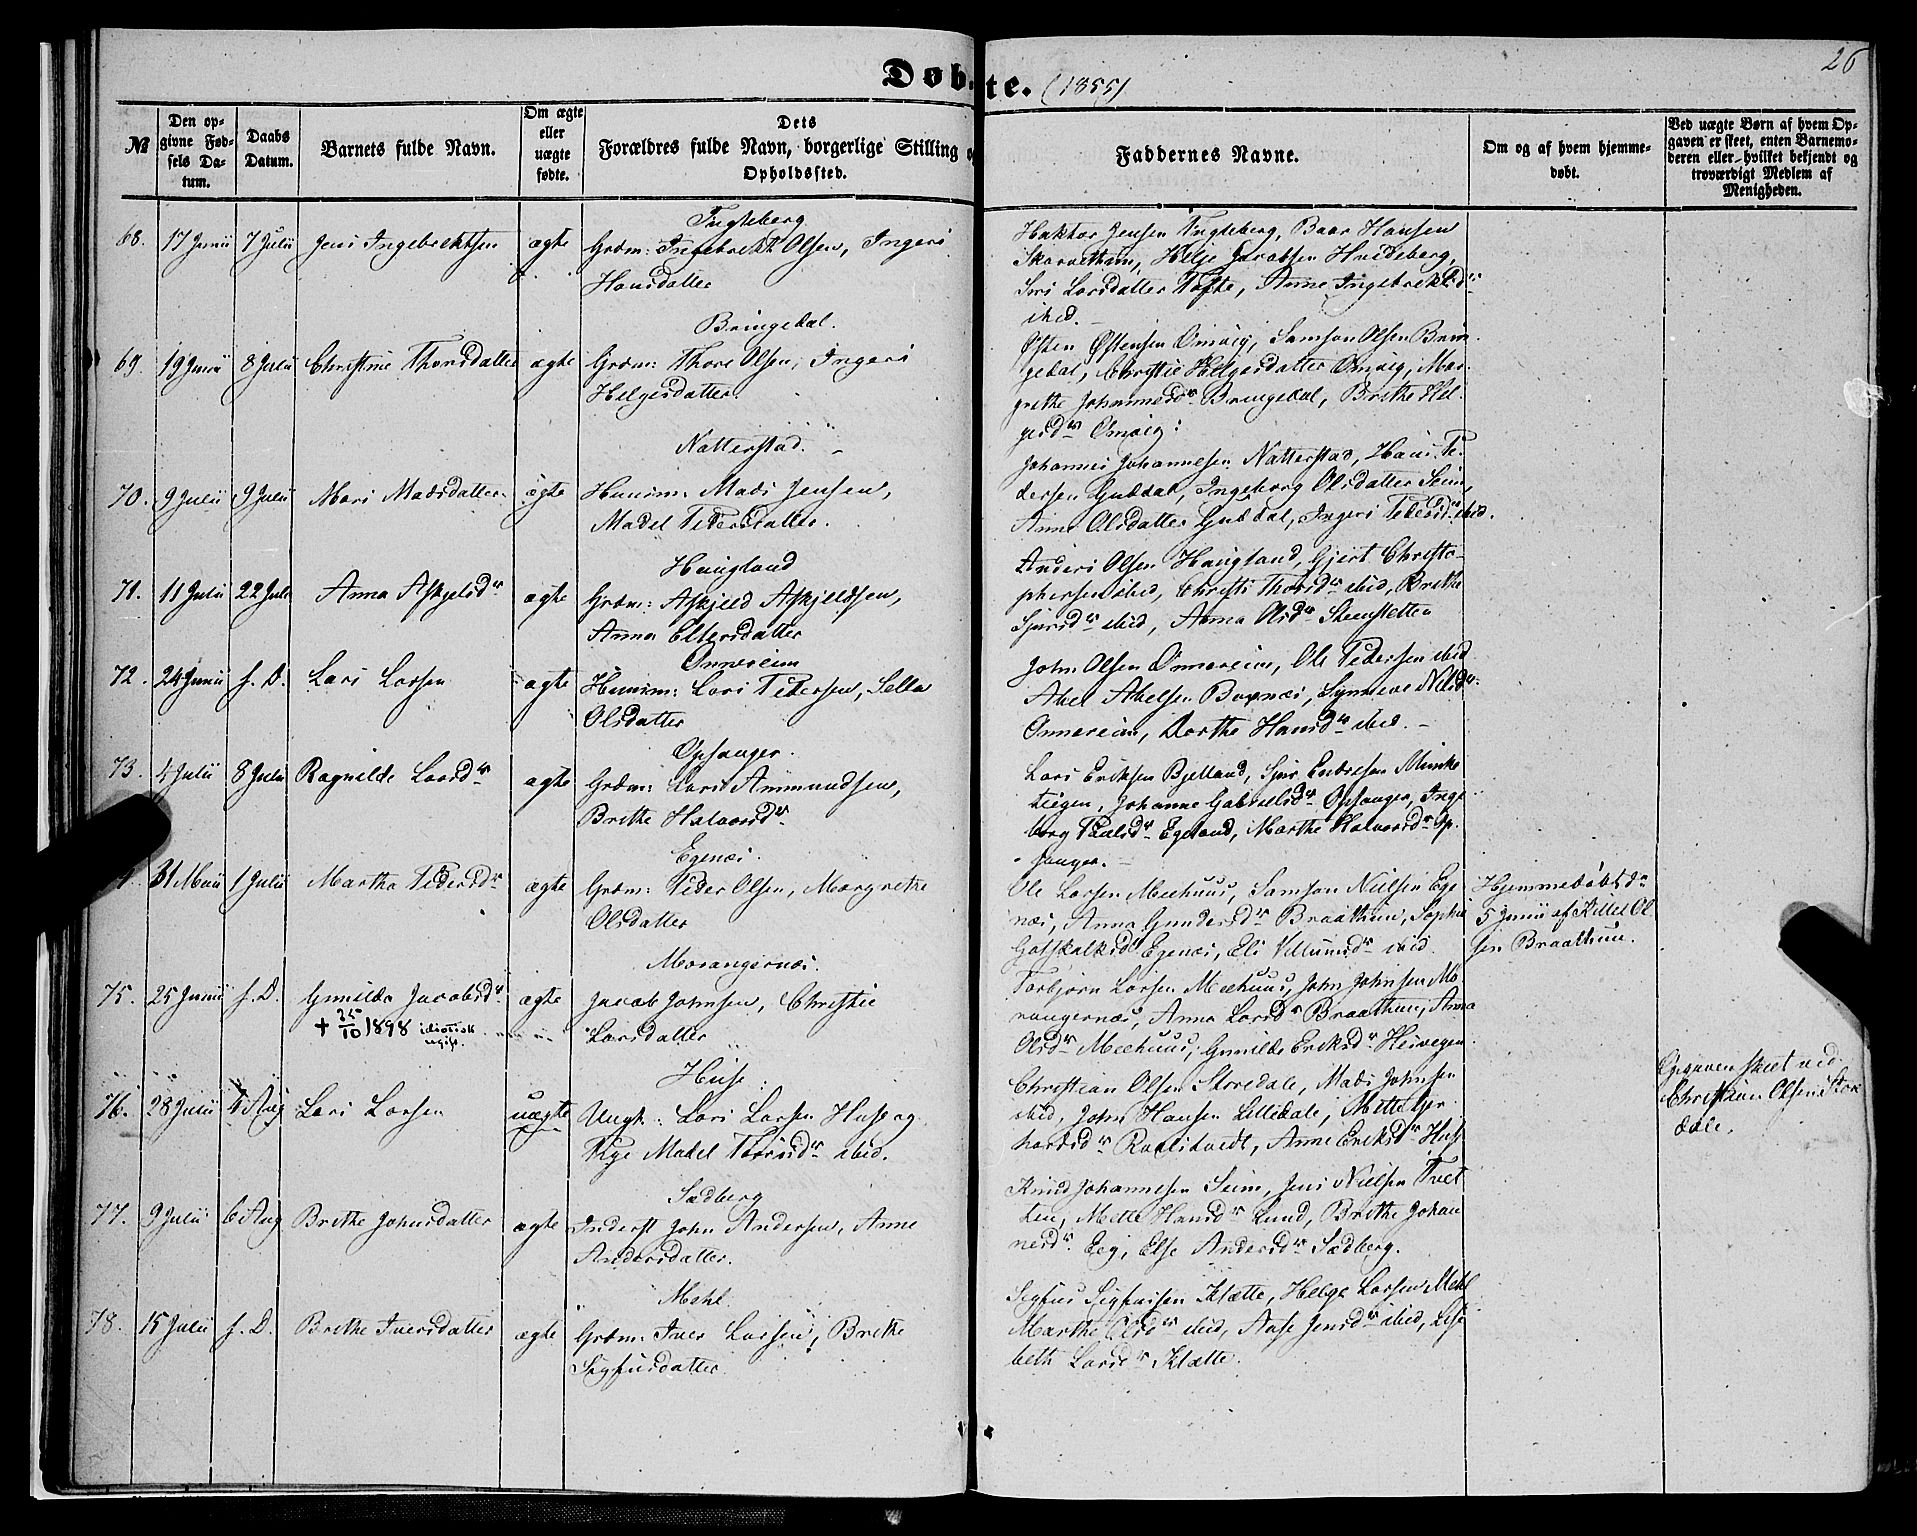 Døbte. (1855)
26
№
Den opgivne Fødsels Datum.
Daabs Datum.
Barnets fulde Navn.
Om ægte eller uægte fødte.
Dets Forældres fulde Navn, borgerlige Stilling og Opholdssted.
Faddernes Navne.
Om og af hvem hjemmedøbt.
Ved uægte Børn af hvem Opgaven er skeet, enten Barnemoderen eller hvilket bekjendt og troværdigt Medlem af Menigheden.
Fugleberg
68. 17 Junii 7 Julii Jens Ingebrektsen ægte Grdm: Ingebrekt Olsen, Ingeri
Hansdatter
Haktor Jensen Fugleberg, Baar Hansen
Skarvethun, Helje Jacobsen Hvideberg,
Siri Larsdatter Tofte, Anne Ingebrektsdr
ibid.
Bringedal.
69. 19 Junii 8 Julii Christine Thorsdatter ægte Grdm: Thore Olsen, Ingeri
Helgesdatter
Østen Østensen Omvig, Samson Olsen Brin
gedal, Christie Helgesdatter Omvig, Mar
grethe Johannesdr Bringedal, Brithe Hel
gesdr Omvig.
Natterstad.
70. 9 Julii 9 Julii Mari Madsdatter ægte Huusm: Mads Jensen,
Madel Pedersdatter.
Johannes Johannesen Natterstad, Hans Pe
dersen Guddal, Ingeborg Olsdatter Seim,
Anne Olsdatter Guddal, Ingeri Pedersdr ibid.
Haugland
71. 11 Julii 22 Juli Anna Askjelsdr ægte Grdm: Askjeld Askjeldsen,
Anna Ellersdatter
Anders Olsen Haugland, Gjert Christo-
phersen ibid, Christi Thorsdr ibid, Brithe
Sjursdr ibid, Anna Olsdr Steensletten
Onnereim
72. 24 Junii s. D. Lars Larsen ægte Huusm: Lars Pedersen, Sella
Olsdatter
John Olsen Onnereim, Ole Pedersen ibid
Abel Abelsen Bognæs, Synneve Nilsdr
Onnereim, Dorthe Hansdr ibid.
Opsanger.
73. 4 Julii 8 Julii Ragnilde Larsdr ægte Grdm: Lars Ammundsen,
Brithe Halvorsdr
Lars Eriksen Bjelland, Sjur Endresen Munke
tiegen, Johanne Gabrielsdr Opsanger, Inge
borg Paulsdr Egeland, Marthe Halvorsdr Op
sanger.
Egenæs.
31 Maii 1 Julii Martha Pedersdr ægte Grdm: Peder Olsen, Margrethe
Olsdatter
Ole Larsen Meehuus, Samson Nielsen Ege
næs, Anna Gundersdr Braathun, Sophie
Gotskalksdr Egenæs, Eli Villumsdr ibid.
Hjemmedøbt d.
5 Junii af Kittel Ol
sen Braathun.
Morangernæs.
75. 25 Junii s. D. Gunilda Jacobsdr ægte Jacob Johnsen, Christie
Larsdatter
+ 25/10 1898 idiotisk
ugift.
Torbjørn Larsen Meehuus, John Johnsen Mo
rangernæs, Anna Larsdr Braathun, Anna
Olsdr Meehuus, Gunilde Eriksdr Heivegen
Huse.
76. 28 Julii 4 Aug Lars Larsen uægte Ungk.: Lars Larsen Huse og
Pige Madel Thorsdr ibid.
Christian Olsen Storedale, Mads Johnsen
ibid, John Hansen Lilledale, Mette Ger
hardsdr Rødstvedt, Anne Eriksdr Huse
Opgaven skeet ved
Christian Olsen Store
dale.
Sædberg
77. 9 Julii 6 Aug Brithe Johnsdatter ægte Inderst John Andersen, Anne
Andersdatter.
Knud Johannesen Seim, Jens Nielsen Tvet
ten, Mette Hansdr Lund, Brithe Johan
nesdr Eeg, Else Andersdr Sædberg.
Mehl.
78. 15 Julii s. D. Brithe Iversdatter ægte Grdm: Iver Larsen, Brithe
Sigfusdatter
Sigfus Sigfusen Klætte, Helge Larsen Mehl
Marthe Olsdr ibid, Aase Jensdr ibid, Lise
beth Larsdr Klætte.